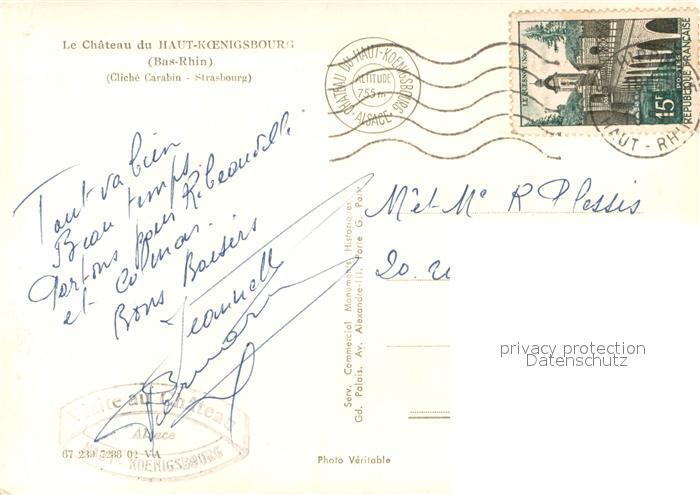 Le Château du HAUT-KŒNIGSBOURG
(Bas-Rhin)
(Cliché Carabin - Strasbourg)
CHÂTEAU DU HAUT-KOENIGSBOURG
ALTITUDE
755m
ALSACE
LE QUESNOY (Nord)
15F
POSTES
REPUBLIQUE FRANÇAISE
HAUT-RHIN
Tout va bien
Beau temps.
Partons pour Ribeauvillé
et Colmar.
Bons Baisers
Jeannette
Bernard
Mr et Me R Plessis
20. ru
Serv. Commercial Monuments Historiques
Gd. Palais. Av. Alexandre-III. Porte G. Paris
Visite au Château
Alsace
HAUT-KOENIGSBOURG
67 239 5288 02 VA
Photo Véritable
privacy protection
Datenschutz